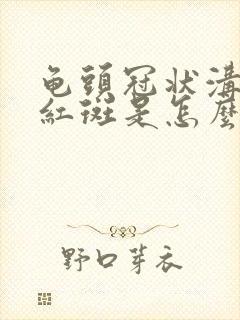 龟頭冠狀溝
紅斑是怎麼
野口芽衣